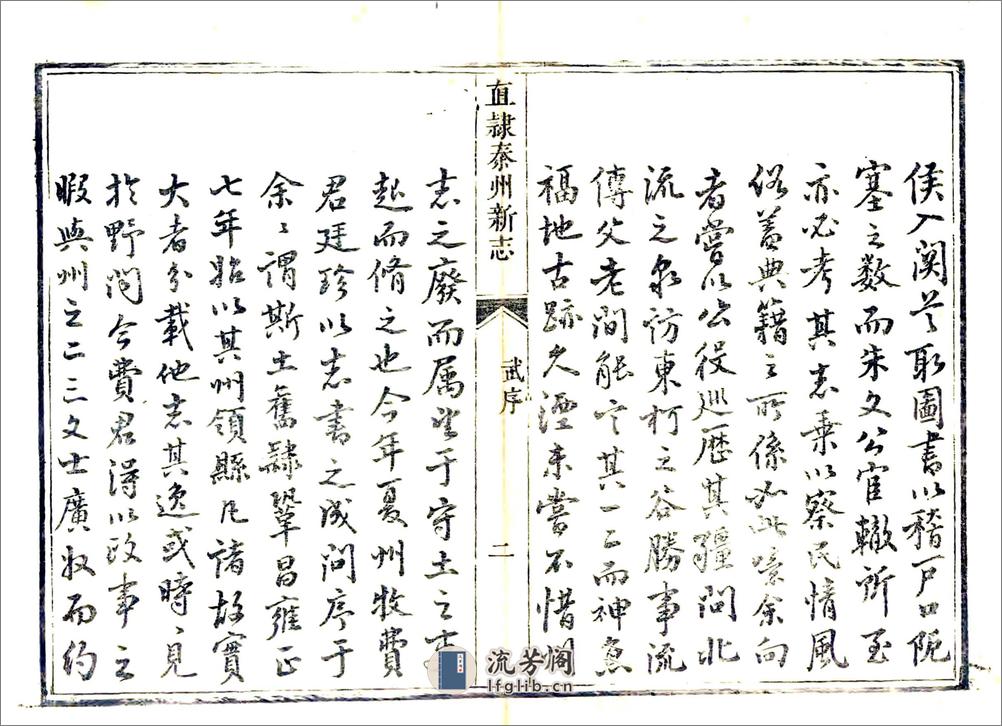 侯入関先取圖書以稽戸口阨
塞之數而朱文公官轍所至
亦必考其志乗以察民情風
俗蓋典籍之所係如此嗟余向
者嘗以公役巡歴其疆問北
流之泉訪東柯之谷勝事流
傳父老間能言其一二而神魚
福地古跡久湮未嘗不惜閤
直隷秦州新志
武序
二
志之廢而属望于守土之
起而脩之也今年夏州牧費
君廷珍以志書之成問序于
余余謂斯土舊隷鞏昌雍正
七年始以其州領縣凡諸故實
大者分載他志其逸或時時見
於野問今費君得以政事之
暇與州之二三文士廣収而約
流芳閣
lfglib.cn